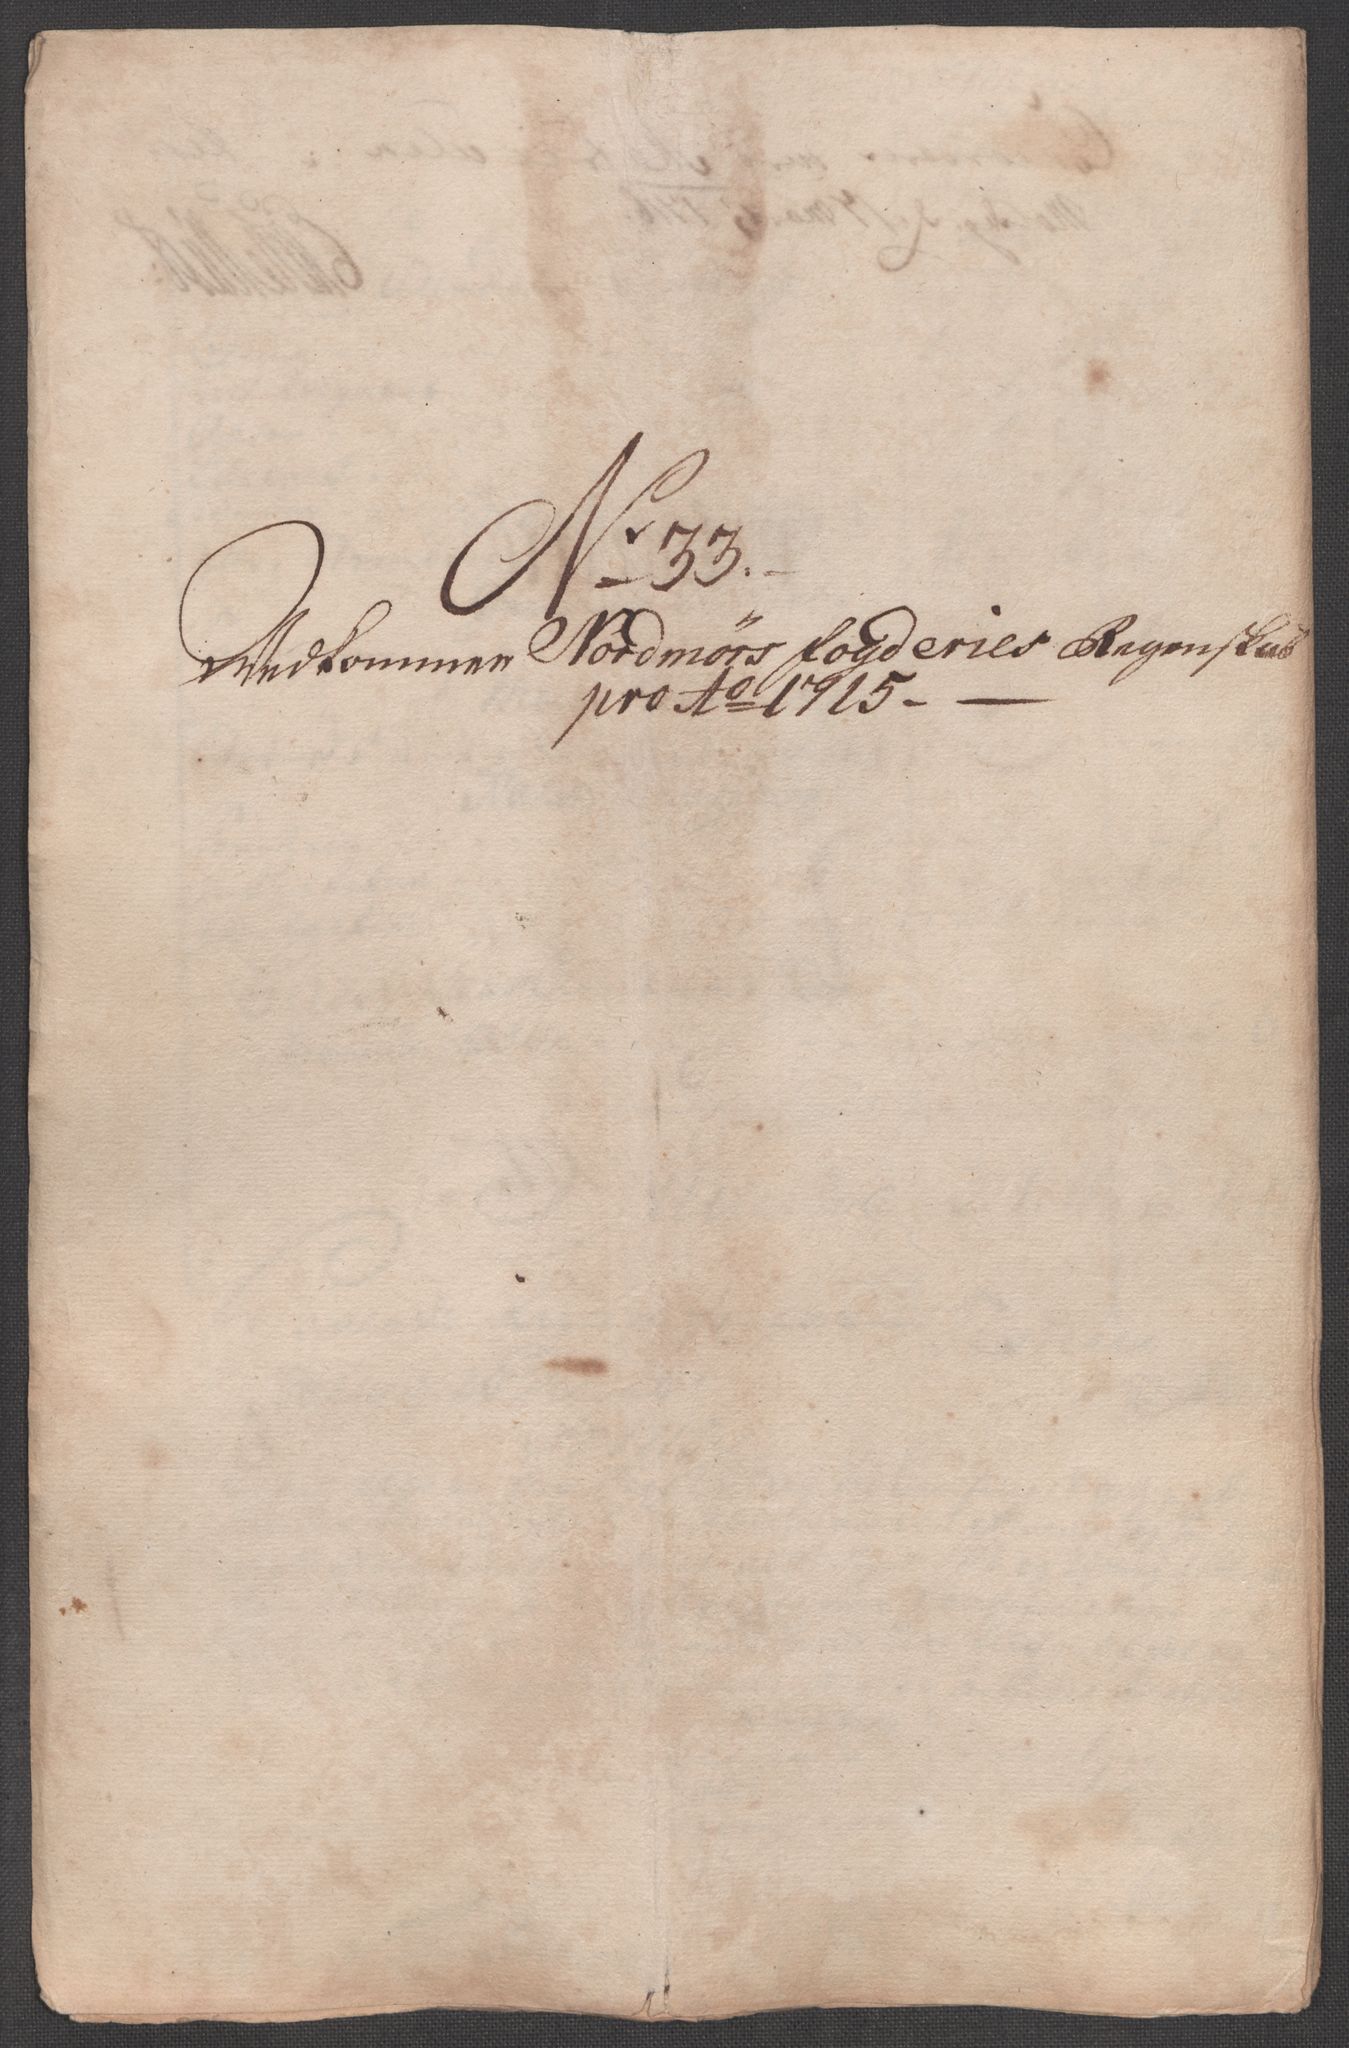 No 33.
Vedkommer Nordmörs fogderies Regenskab
pro Ao 1715